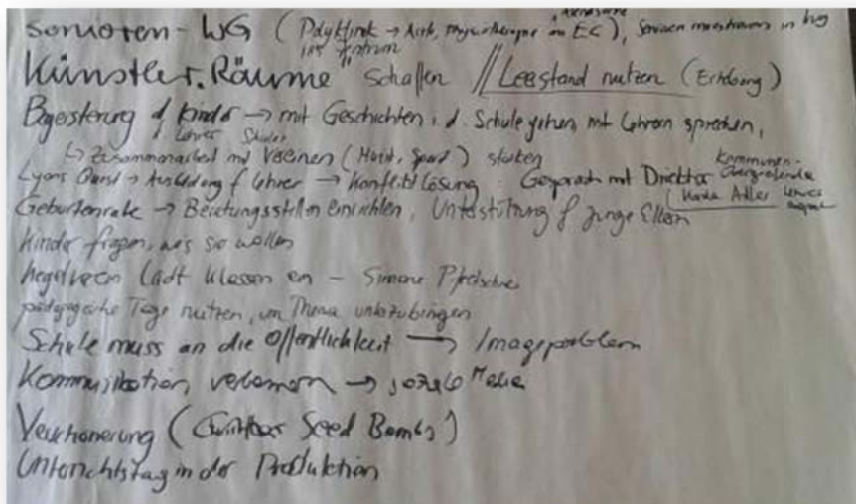 Senioren-WG (Poliklinik → Ärzte, Physiotherapie im EG), Senioren in WG
ins Zentrum
Künstler.Räume schaffen // Leestand nutzen (Erholung)
Begeisterung d. Kinder → mit Geschichten i. d. Schule gehen, mit Lehrern sprechen,
d. Lehrer Schüler
↳ Zusammenarbeit mit Vereinen (Musik, Sport) stärken
Lyons Quest → Ausbildung f Lehrer → Konfliktlösung: Gespräch mit Direktor
Kommunen-übergreifende
Geburtenrate → Beratungsstellen einrichten, Unterstützung f junge Eltern
Kinder fragen, was sie wollen
lädt Klassen ein – Simone
pädagogische Tage nutzen, um Thema unterzubringen
Schule muss an die Öffentlichkeit → Imageproblem
Kommunikation verbessern → soziale Medie
Verschönerung (Seed Bombs)
Unterrichtstag in der Produktion